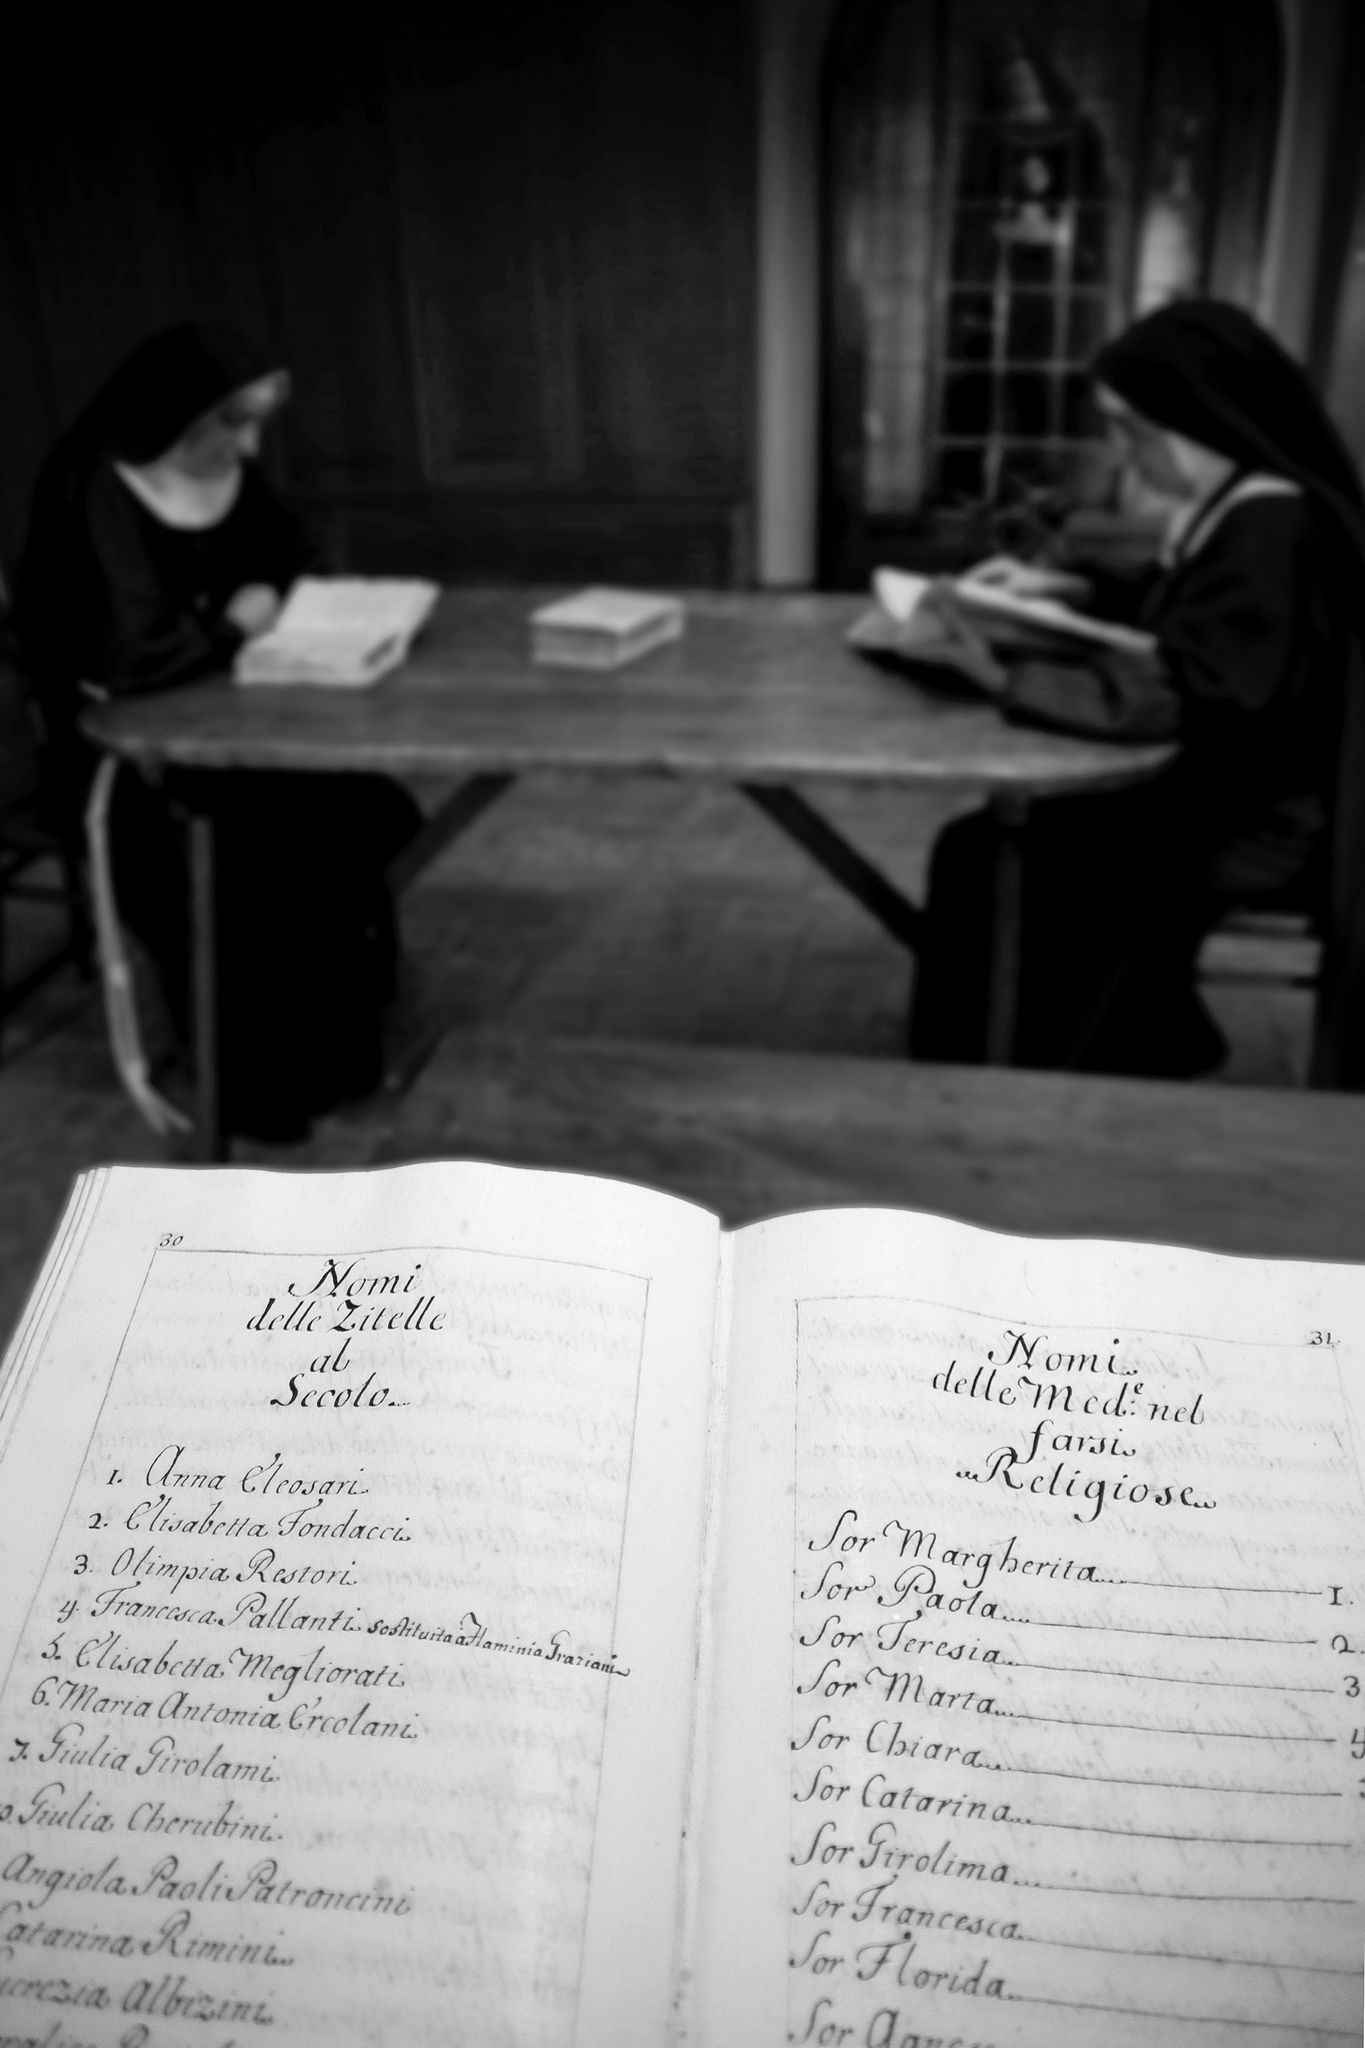 30
Nomi
delle Zitelle
al
Secolo
1. Anna Cleosari
2. Elisabetta Fondacci
3. Olimpia Restori
4. Francesca Pallanti sostituita à Flaminia Graziani
5. Elisabetta Megliorati
6. Maria Antonia Ercolani
7. Giulia Girolami
Giulia Cherubini
Angiola Paoli Patroncini
Catarina Rimini
Albizini
31
Nomi
delle Med:e nel
farsi
Religiose
Sor Margherita 1.
Sor Paola 2.
Sor Teresia 3
Sor Marta 4
Sor Chiara
Sor Catarina
Sor Girolima
Sor Francesca
Sor Florida
Sor